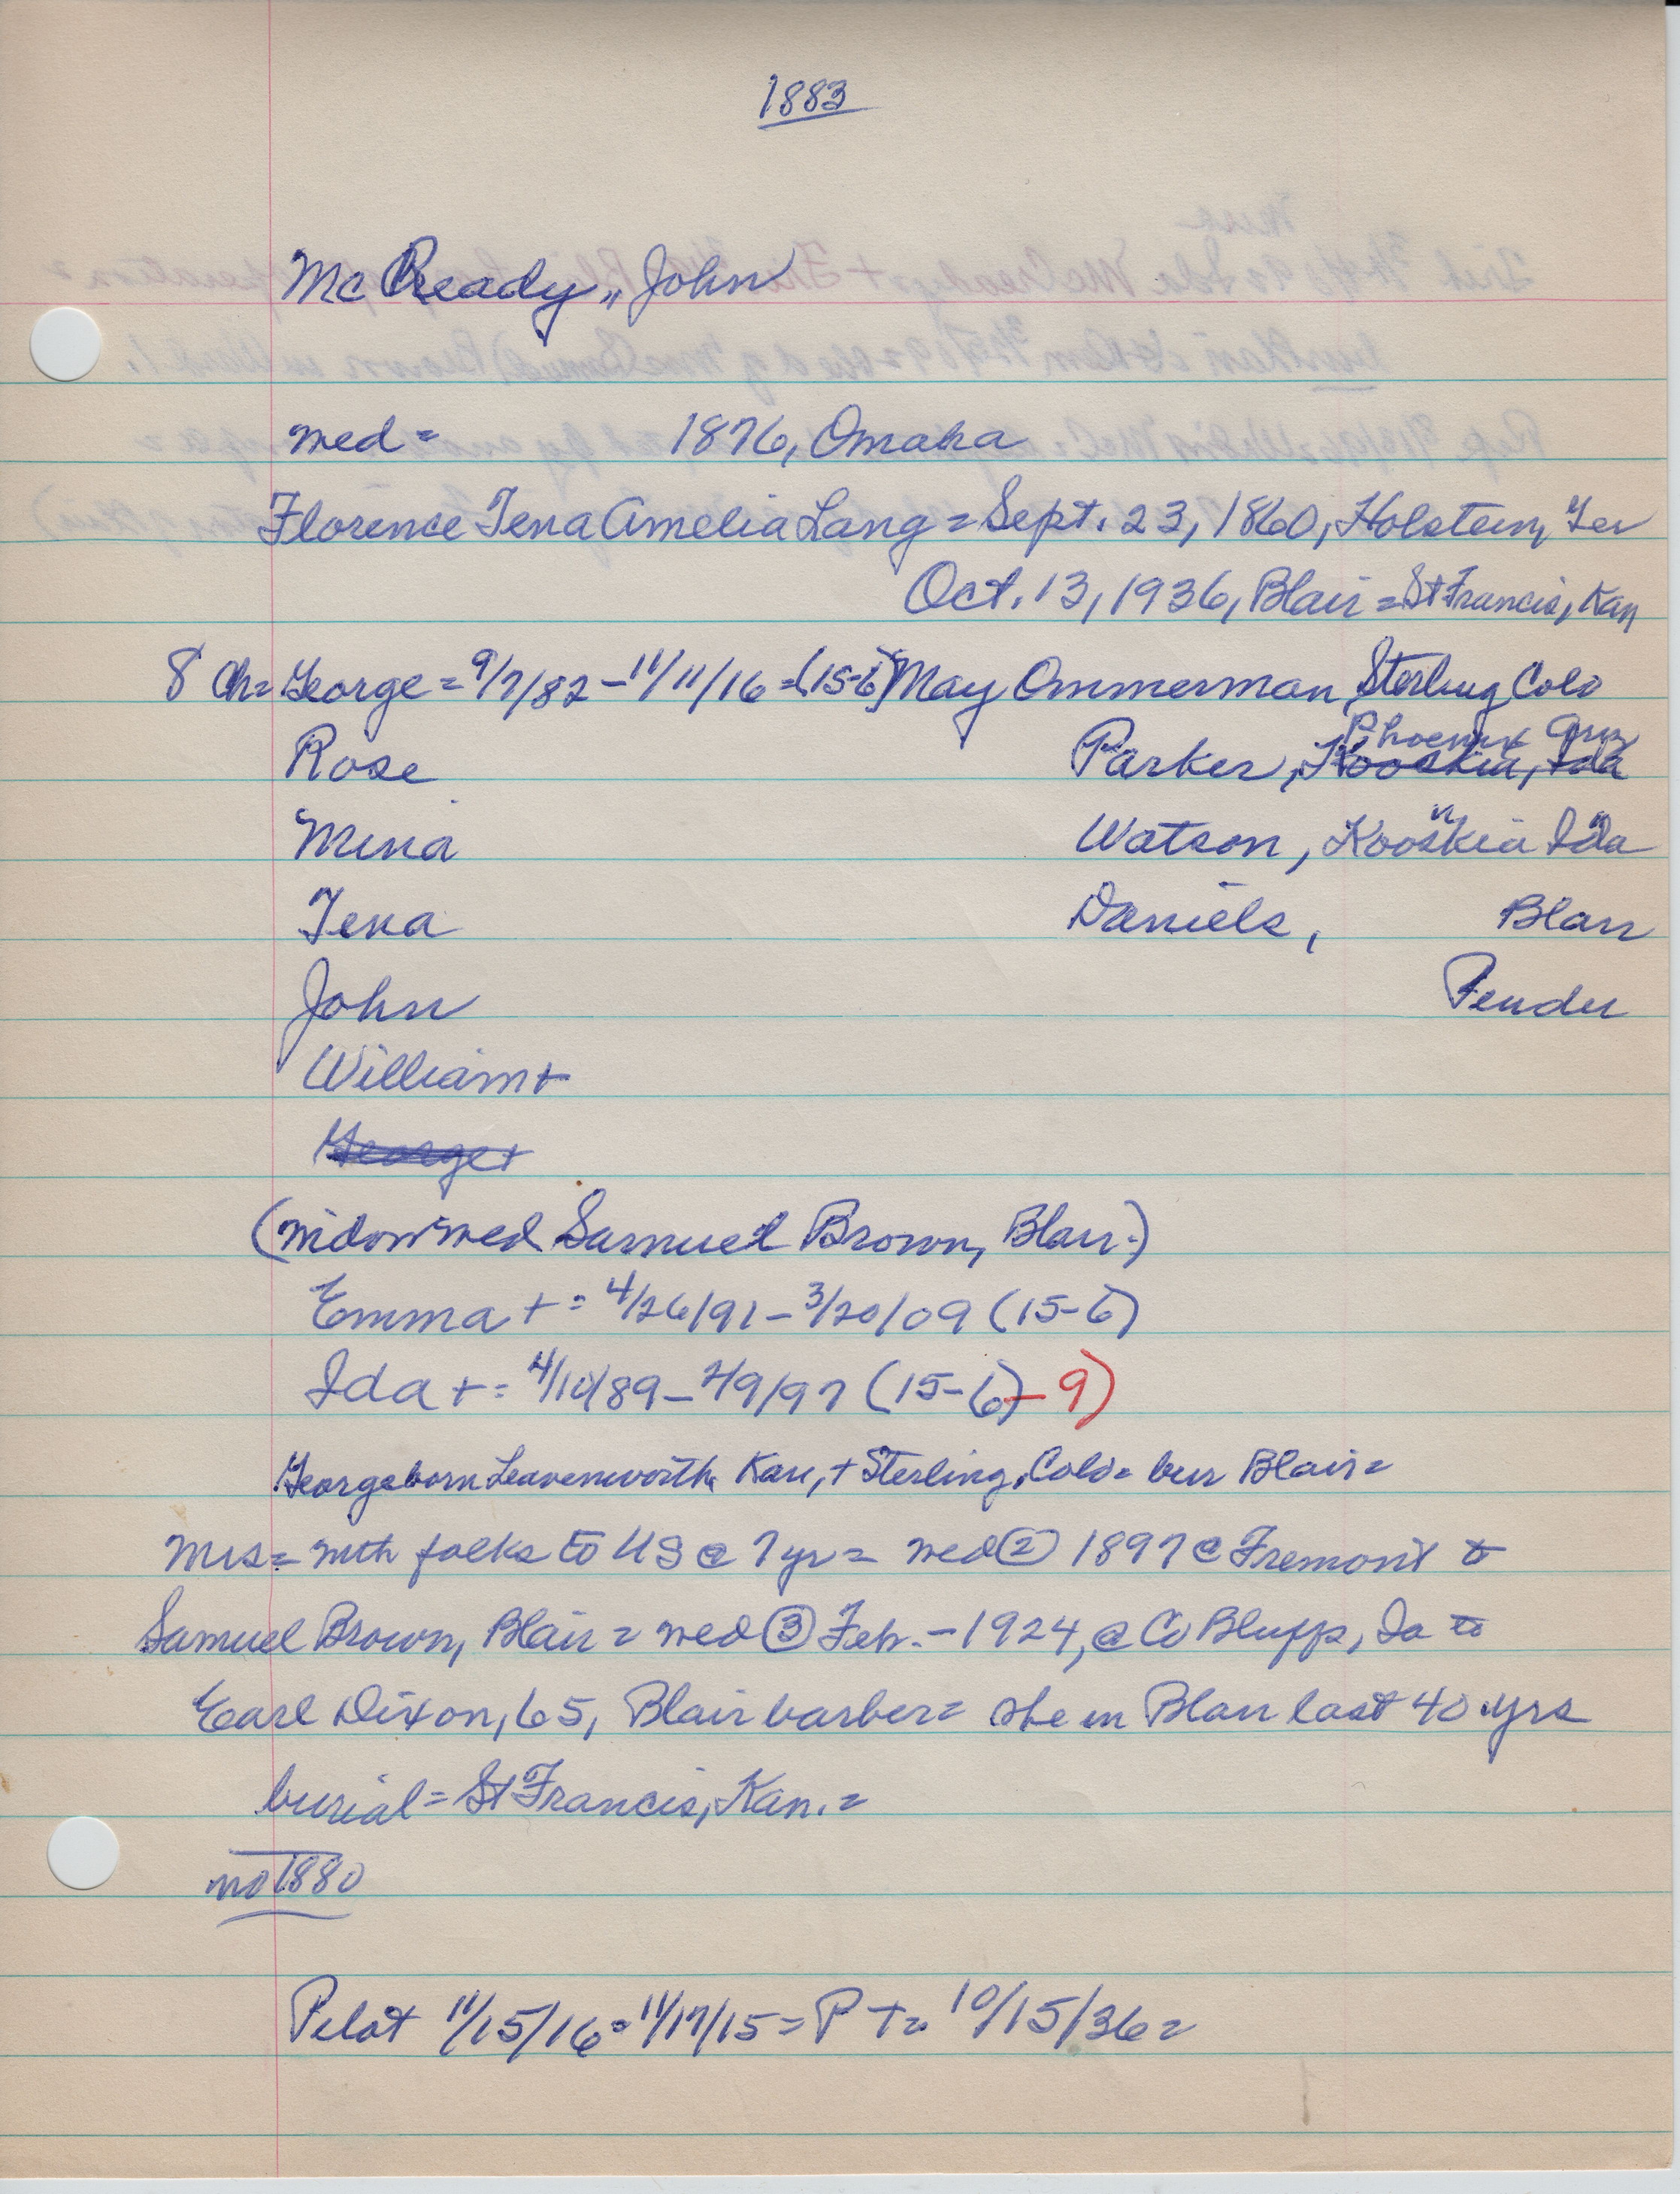 1883
McCready, John
wed = 1876, Omaha
Florence Tena Amelia Lang = Sept. 23, 1860, Holstein, Ger
Oct. 13, 1936, Blair = St Francis, Kan
8 Ch = George = 9/7/82 - 11/11/16 = (15-6) May Ommerman, Sterling Colo
Phoenix Ariz
Rose Parker, Kooskia, Ida
Mina Watson, Kooskia Ida
Tena Daniels, Blair
John Pender
William +
George +
(widow wed Samuel Brown, Blair.)
Emma + = 4/26/91 - 3/20/09 (15-6)
Ida + = 4/10/89 - 2/9/97 (15-6) - 9)
George born Leavenworth, Kan, + Sterling, Colo = bur Blair =
Mrs = with folks to US @ 7 yr = wed ② 1897 @ Fremont to
Samuel Brown, Blair = wed ③ Feb. - 1924, @ Co Bluffs, Ia to
Earl Dixon, 65, Blair barber = she in Blair last 40 yrs
burial = St Francis, Kan. =
no 1880
Pilot 11/15/16 = 11/17/15 = P T = 10/15/36 =